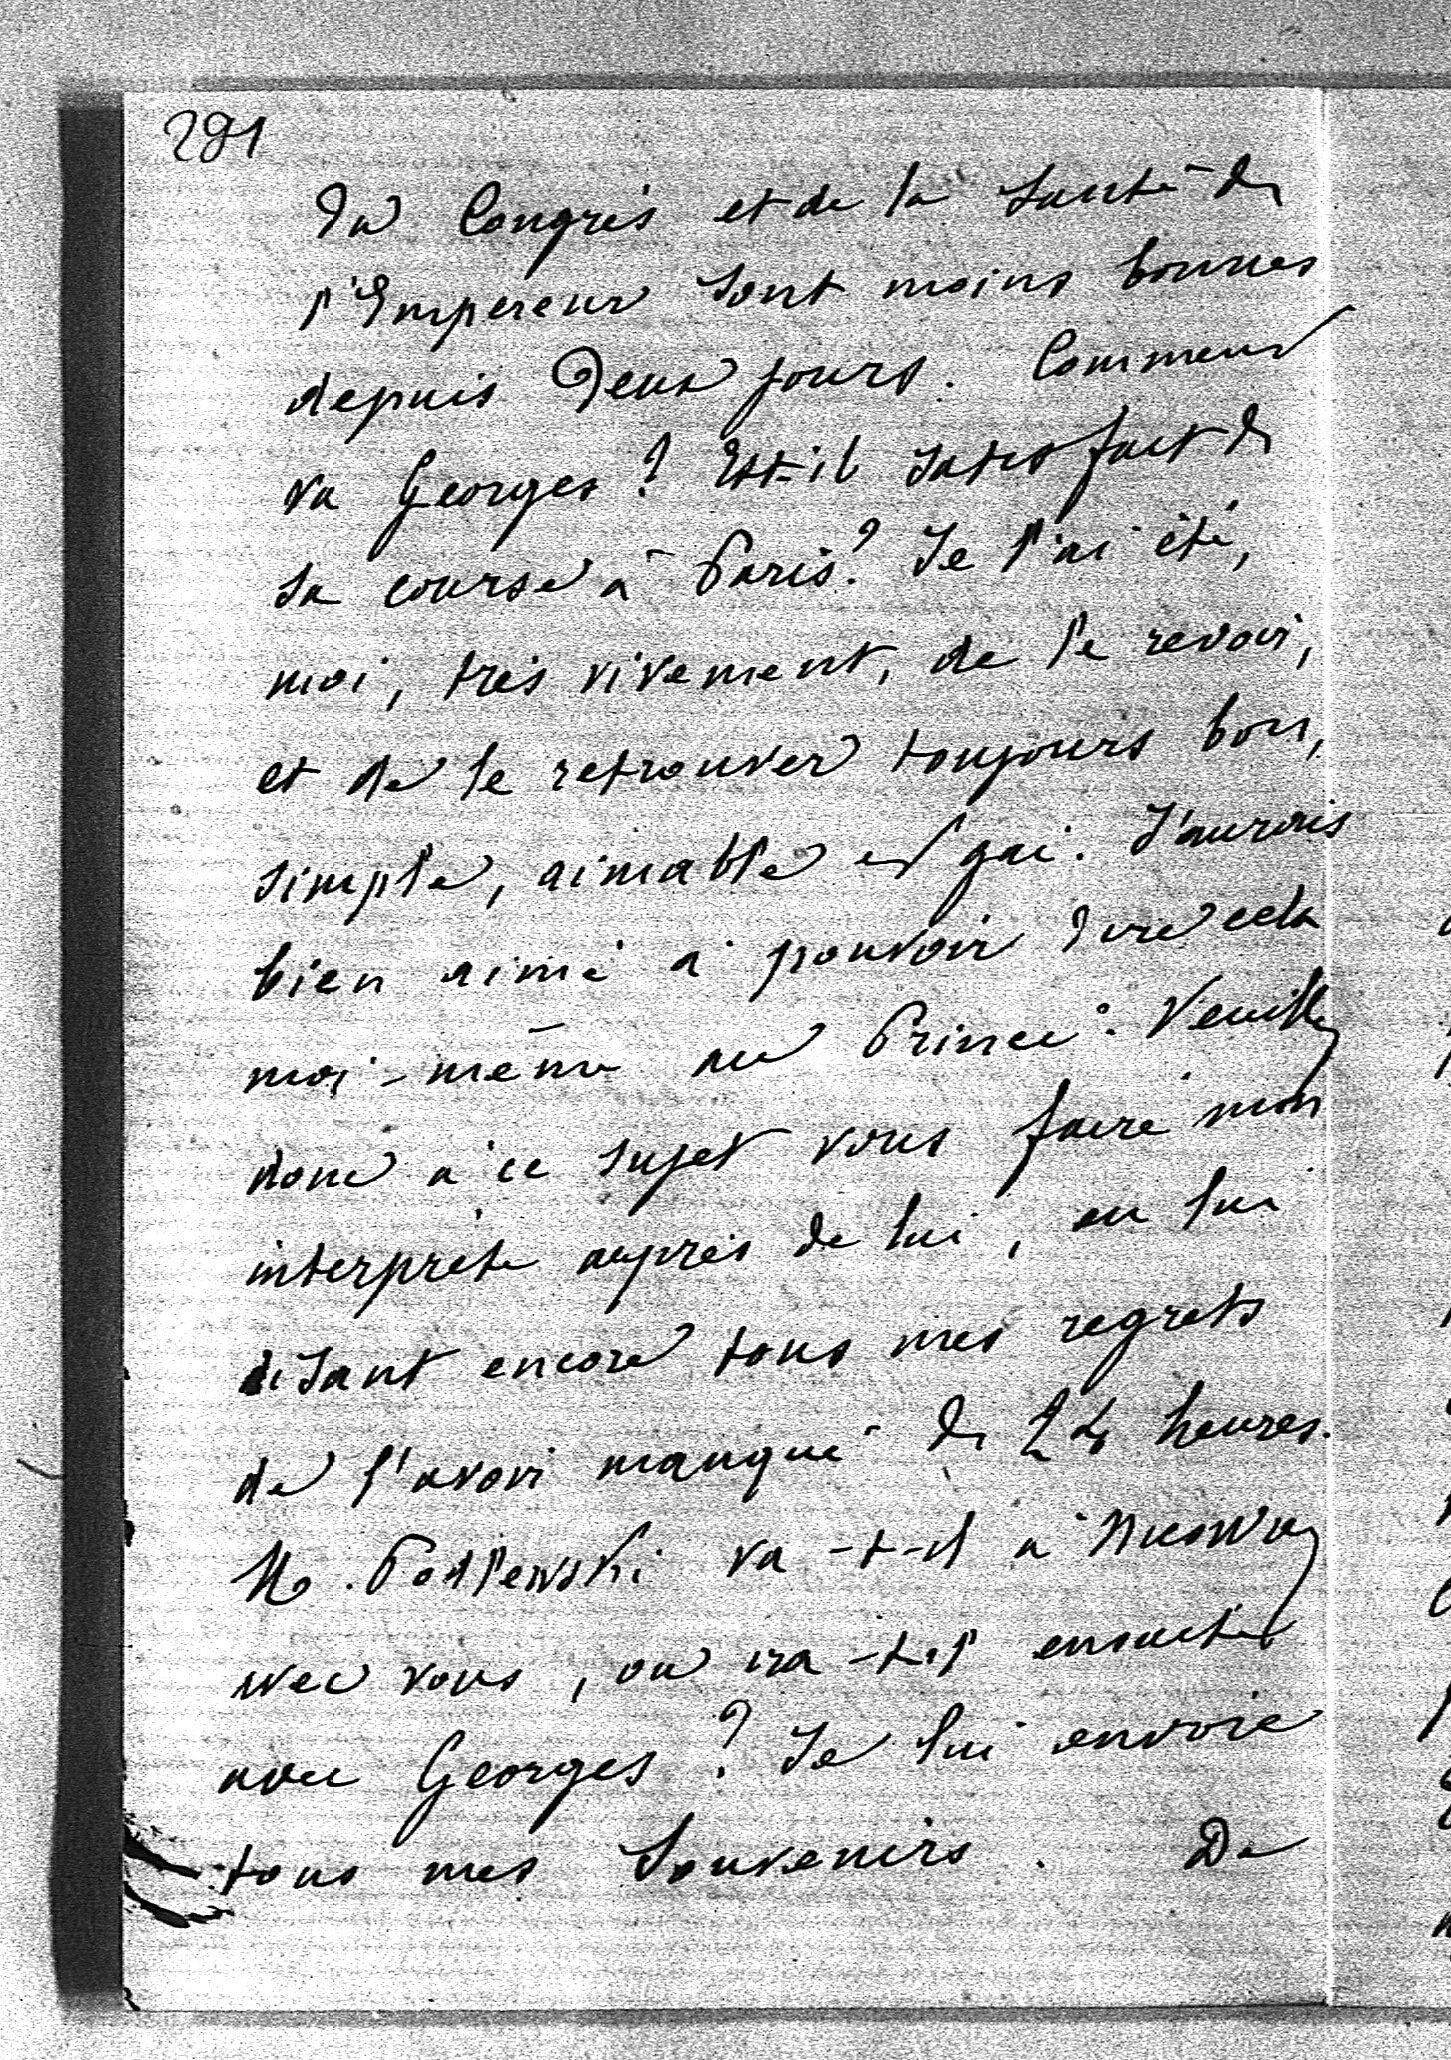 291
du Congrès et de la santé de
l'Empereur sont moins bonnes
depuis deux jours. Comment
va Georges ? Est-il satisfait de
sa course à Paris ? Je l'ai été,
moi, très vivement, de le revoir,
et de le retrouver toujours bon,
simple, aimable et gai. J'aurais
bien aimé à pouvoir dire cela
moi-même au Prince. Veuillez
donc à ce sujet vous faire mon
interprète auprès de lui, en lui
disant encore tous mes regrets
de l'avoir manqué de 24 heures.
M. Podlewski va-t-il à
avec vous, ou ira-t-il ensuite
avec Georges ? Je lui envoie
tous mes souvenirs. De